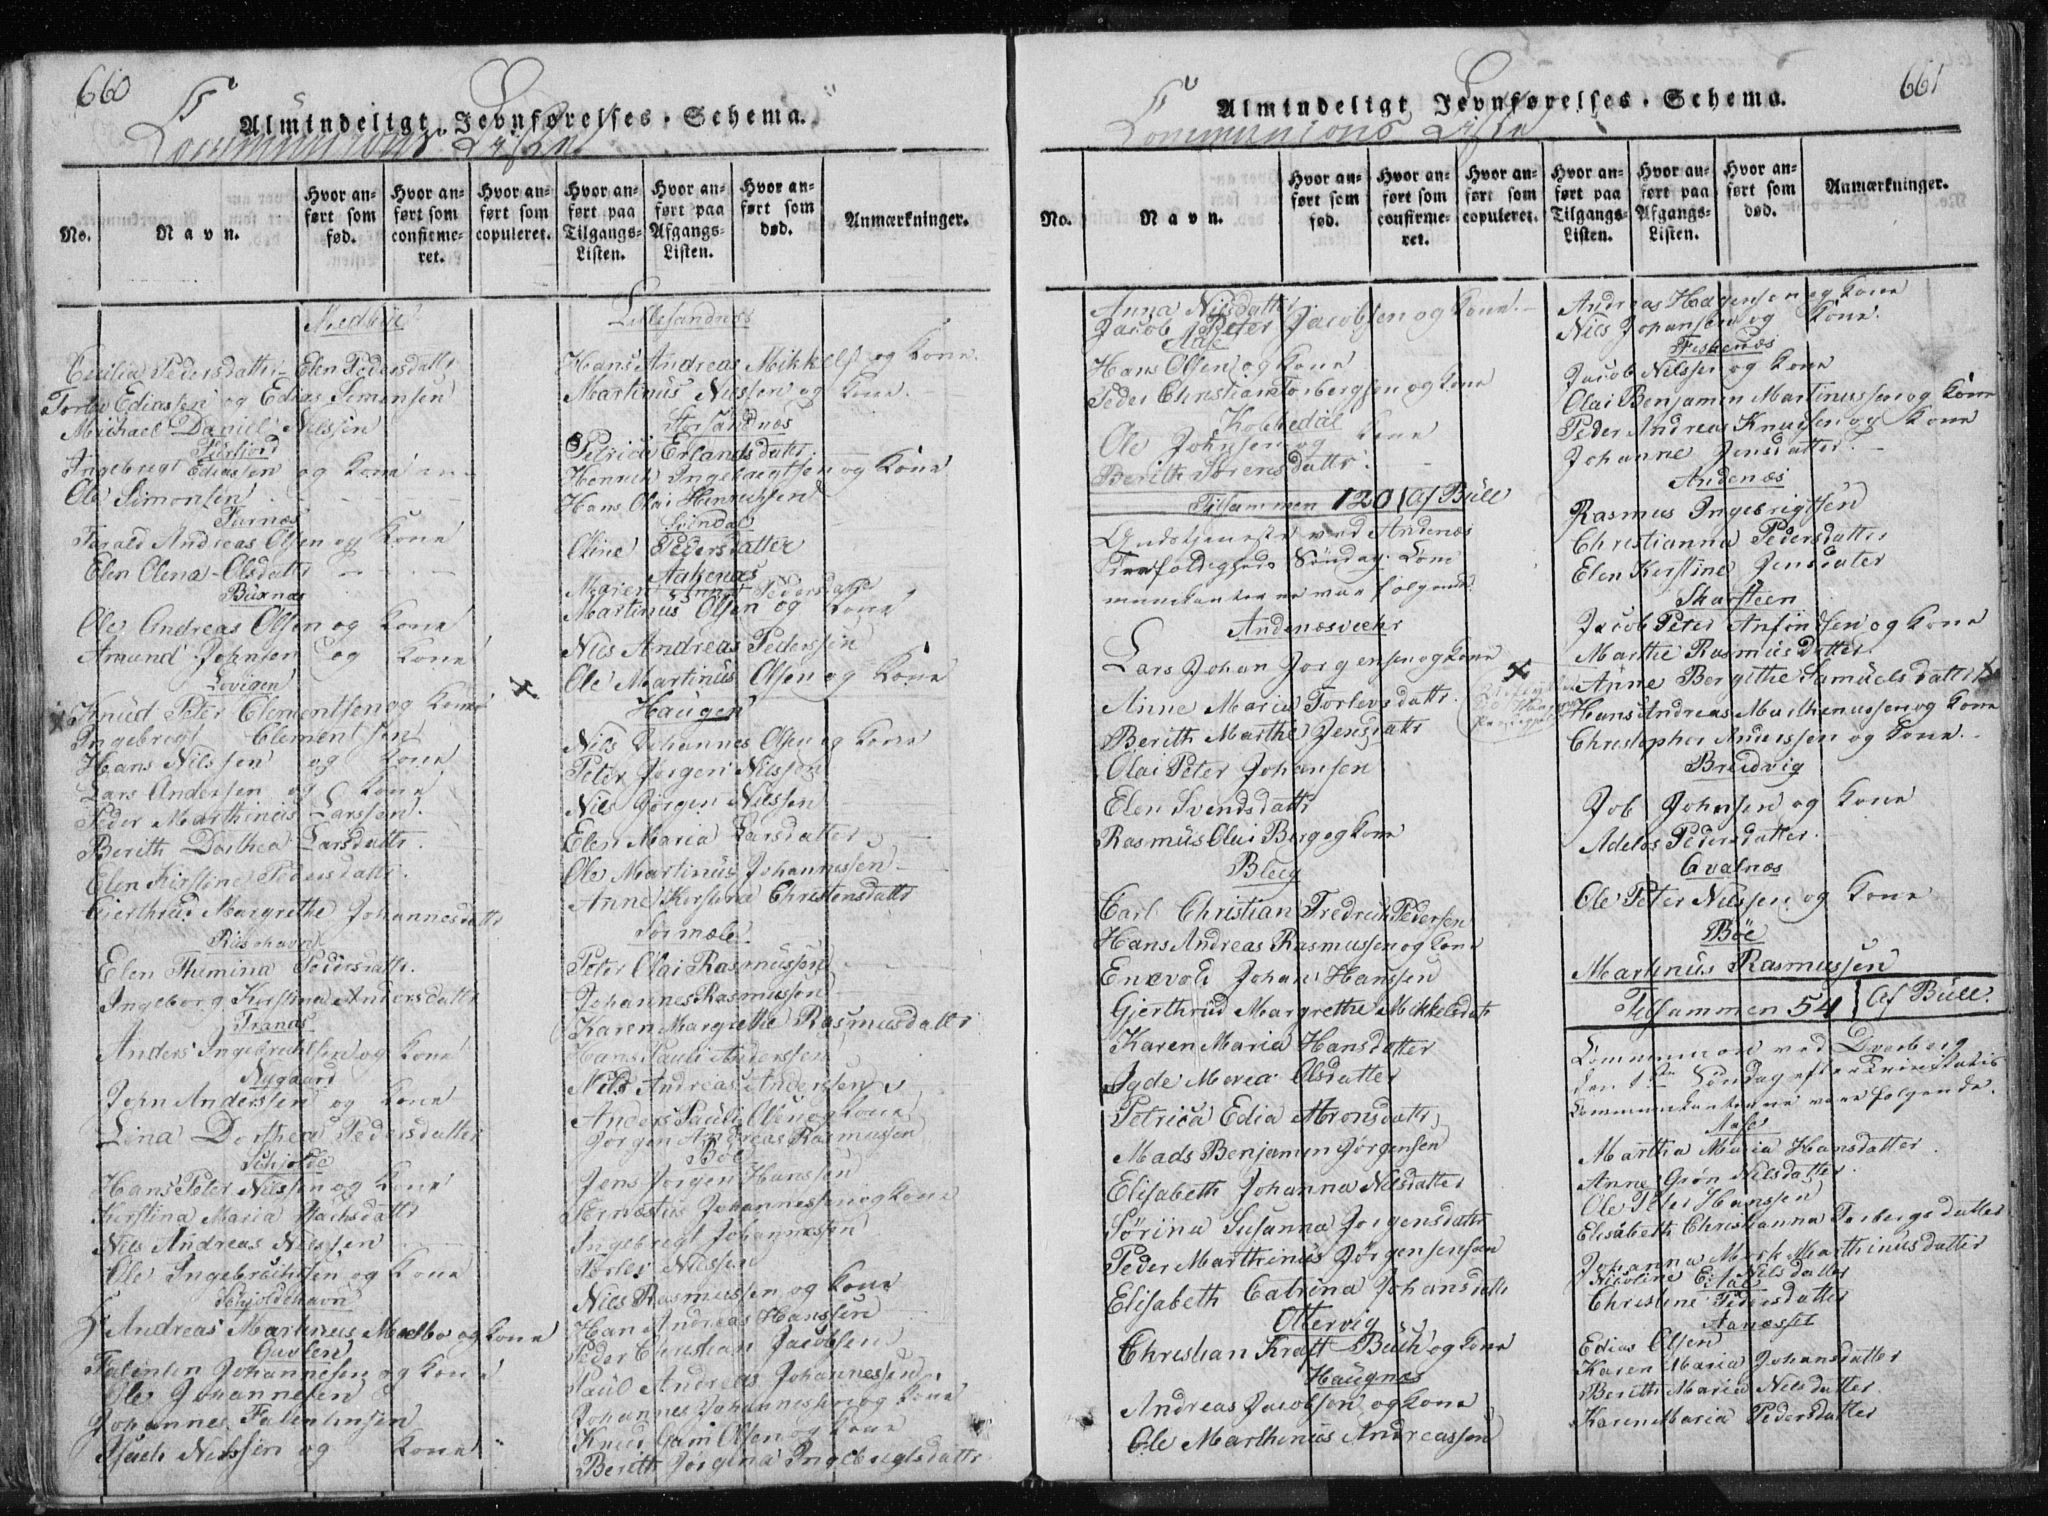 660
Almindeligt Jevnførelses-Schema.
Communions Liste
No.
Navn.
Hvor anført som fød.
Hvor anført som confirmeret.
Hvor anført som copuleret.
Hvor anført paa Tilgangs-Listen.
Hvor anført paa Afgangs-Listen.
Hvor anført som død.
Anmærkninger.
Medbye
Cecilia Pedersdatter Elen Pedersdattr
Torlev Ediassen og Edias Simonsen
Michael Daniel Nilssen
Ingebrigt Ediassen og Kone
Ole Simonsen
Furnæs
Andreas Olsen og Kone
Elen Olena Olsdattr
Buxnæs
Ole Andreas Olsen og Kone
Amund Johnsen og Kone
Lovigen
Knud Peter Clementsen og Kone
Ingebrigt Clementsen
Hans Nilssen og Kone
Lars Andersen og Kone
Peder Marthinus Larssen.
Berith Dorthea Larsdattr.
Elen Kirstine Pedersdattr.
Gierthrud Margrethe Johannesdattr
Risøhavn
Elen Themina Pedersdattr.
Ingeborg Kirstina Andersdattr
Tranas
Anders Ingebrichtsen og Kone
Nygaard
John Anderssen og Kone
Lena Dorthea Pedersdatter
Schjolde
Hans Peter Nilssen og Kone
Kirstina Maria Isachsdatter
Nils Andreas Nilssen
Ole Ingebrichtsen og Kone
Schjoldehavn
Andreas Martinus Medbo og Kone
Gavlen
Falentin Johannesen og Kone
Ole Johannesen
Johannes Falentinsen
Isach Nilssen og Kone
Lillesandnæs
Hans Andreas Mikkels. og Kone
Martinus Nilssen og Kone
Storsandnæs
Petrice Erlandsdatter
Henrich Ingebrigtsen og Kone
Hans Olai Henrichsen
Oline Pedersdatter
Aaknæs
Maren Pedersdatter
Martinus Olsen og Kone
Nils Andreas Pedersen
Ole Martinus Olsen og Kone
Haugen
Nils Johannes Olsen og Kone
Peter Jørgen Nilssen
Nils Jørgen Nilssen
Elen Maria Larsdatter
Ole Martinus Johannessen
Anne Kirstina Christensdattr
Sørmæle
Peter Olai Rasmussen
Johannes Rasmussen
Karen Margrethe Rasmusdattr
Hans Pauli Anderssen
Nils Andreas Anderssen
Anders Pauli Olsen og Kone
Jørgen Andreas Rasmussen
Böe
Jens Jørgen Hanssen
Arnætus Johannessen og Kone
Ingebrigt Johannessen
Torlef Nilssen
Nils Rasmussen og Kone
Hans Andreas Hanssen
Peder Christian Jacobsen
Paul Andreas Johannessen
Johannes Johannessen og Kone
Knud Gam Olsen og Kone
Berith Jørgina Ingebrigtsdattr
661
Almindeligt Jevnførelses-Schema.
Communions Liste
No.
Navn.
Hvor anført som fød.
Hvor anført som confirmeret.
Hvor anført som copuleret.
Hvor anført paa Tilgangs-Listen.
Hvor anført paa Afgangs-Listen.
Hvor anført som død.
Anmærkninger.
Anna Nilsdatter
Jacob Peter Jacobsen og Kone.
Aase
Hans Olsen og Kone
Peder Christian Torbergsen og Kone
Kobbedal
Ole Johnsen og Kone
Berith Sørensdattr.
Tilsammen 120 Af Büll
Gudstjeneste ved Andenæs
Trefoldigheds Søndag. Communikanterne vare følgende:
Andenæsvær
Lars Johan Jørgensen og Kone
Anne Maria Torlevsdattr.
Berith Marthe Jensdattr
Olai Peter Johansen
Elen Svendsdattr
Rasmus Olai Berg og Kone
Bleeg
Carl Christian Fredrich Pedersen
Hans Andreas Rasmussen og Kone
Enevold Johan Hanssen
Gjerthrud Margrethe Mikkelsdatr
Karen Maria Hansdatter
Sygde Maria Olsdatter
Petrica Edia Aronsdattr
Mads Benjamin Jørgensen
Elisabeth Johanna Nilsdatter
Sørina Susanna Jørgensdattr
Peder Marthinus Jørgensen
Elisabeth Catrina Johansdattr
Ottervig
Christian Kraft Buch og Kone
Haugnæs
Andreas Jacobsen og Kone
Ole Marthinus Andreassen
Andreas Hagensen og Kone
Nils Johansen og Kone.
Fiskenæs
Jacob Nilssen og Kone
Olai Benjamin Martinussen og Kone
Peder Andreas Knudsen og Kone
Johanne Jensdatter.
Andenæs
Rasmus Ingebrigtsen
Christianna Pedersdattr
Elen Kirstine Jensdatter
Skarsteen
Jacob Peter Anfindsen og Kone
Marthe Rasmusdatter
Anne Bergithe Samuelsdatter
Hans Andreas Marthenussen og Kone
Christopher Anderssen og Kone.
Breidvig
Job Johnsen og Kone
Adelos Pedersdatter
Qvalnæs
Ole Peter Nilssen og Kone
Böe
Martinus Rasmussen
Tilsammen 54 Af Büll.
Communion ved Dverberg
den 1ste Søndag efter Trinitatis
Communikanterne vare følgende.
Aase
Martha Maria Hansdatter
Anne Grøn Nilsdatter
Ole Peter Hanssen
Elisabeth Christianna Torbergsdatter
Johanna Mork Marthinusdatter
Nicoline Nilsdatter
Christine Pedersdatter
Aanæsset
Edias Olsen
Karen Maria Johansdatter
Berith Maria Nilsdatter
Karen Maria Pedersdatter